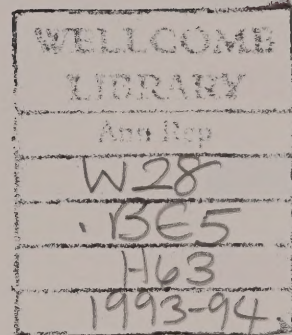 WELLCOME
LIBRARY
Ann Rep
W28
.BE5
H63
1993-94